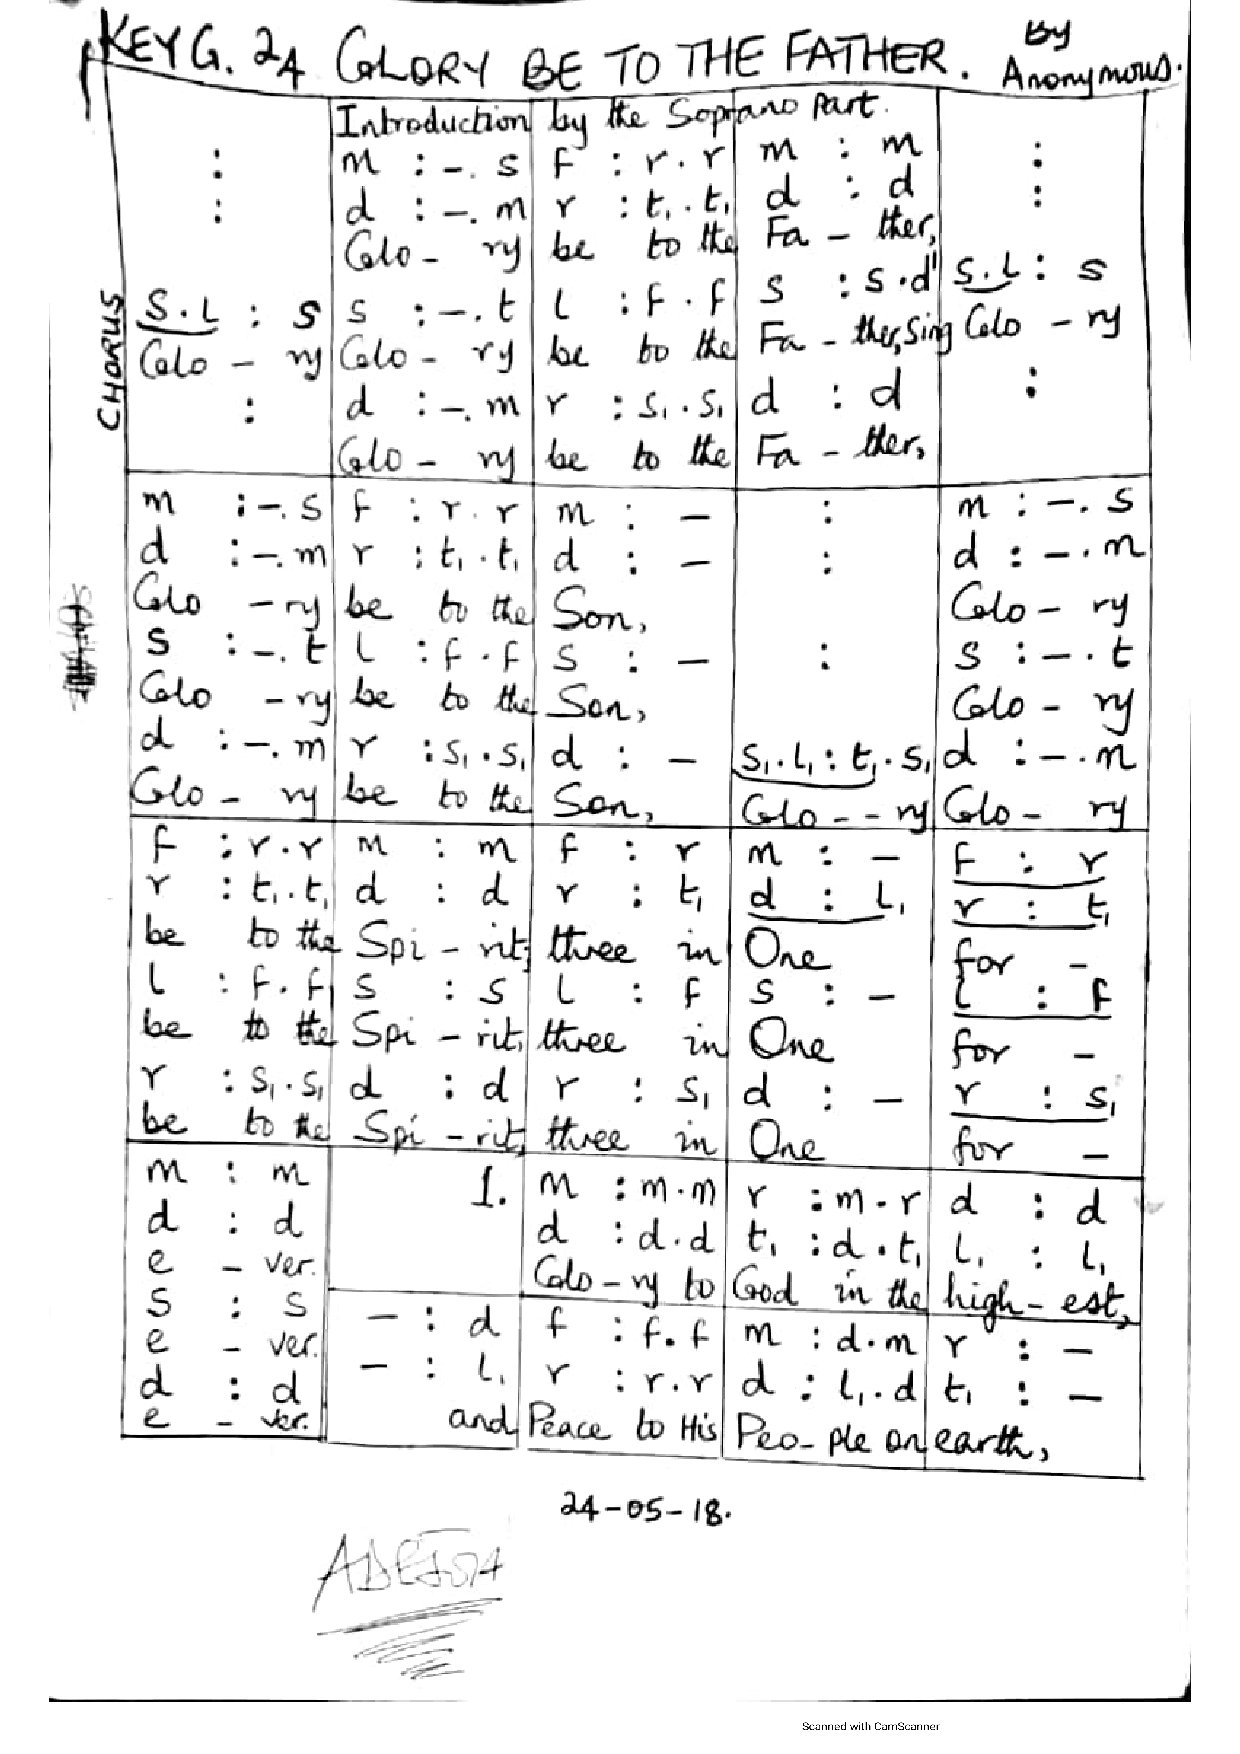 KEY G. 24 GLORY BE TO THE FATHER. By Anonymous.
Introduction by the Soprano Part.
: m :-. s f : r. r m : m :
: d :-. m r : t₁. t₁ d : d :
Glo - ry be to the Fa - ther,
CHORUS
s. l : s s :-. t l : f. f s : s. d' s. l : s
Glo - ry Glo - ry be to the Fa - ther, Sing Glo - ry
: d :-. m r : s₁. s₁ d : d :
Glo - ry be to the Fa - ther,
m :-. s f : r. r m : - : m :-. s
d :-. m r : t₁. t₁ d : - : d :-. m
Glo - ry be to the Son, Glo - ry
s :-. t l : f. f s : - : s :-. t
Glo - ry be to the Son, Glo - ry
d :-. m r : s₁. s₁ d : - s₁. l₁ : t₁. s₁ d :-. m
Glo - ry be to the Son, Glo - - ry Glo - ry
f : r. r m : m f : r m : - f : r
r : t₁. t₁ d : d r : t₁ d : l₁ r : t₁
be to the Spi - rit, three in One for -
l : f. f s : s l : f s : - l : f
be to the Spi - rit, three in One for -
r : s₁. s₁ d : d r : s₁ d : - r : s₁
be to the Spi - rit, three in One for -
m : m
d : d
e - ver.
s : s
e - ver.
d : d
e - ver.
1. m : m. m r : m. r d : d
d : d. d t₁ : d. t₁ l₁ : l₁
Glo - ry to God in the high - est,
- : d f : f. f m : d. m r : -
- : l₁ r : r. r d : l₁. d t₁ : -
and Peace to His Peo - ple on earth,
24-05-18.
Scanned with CamScanner